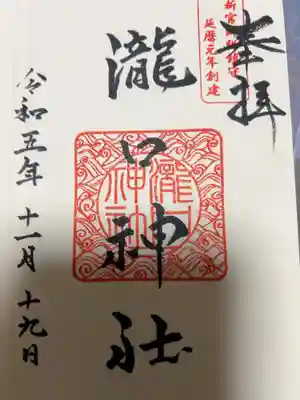 奉拝
延暦元年創建
瀧口神社
瀧口神社
令和五年 十一月 十九日